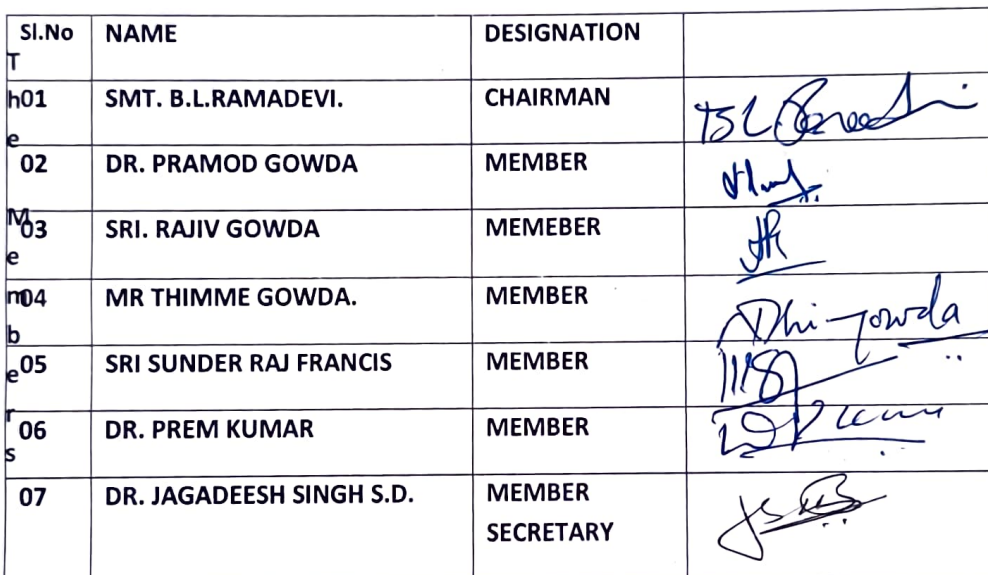 Sl.No NAME DESIGNATION
T
h01 SMT. B.L.RAMADEVI. CHAIRMAN
e
02 DR. PRAMOD GOWDA MEMBER
M03 SRI. RAJIV GOWDA MEMEBER
e
m04 MR THIMME GOWDA. MEMBER Thi-gowda
b
e05 SRI SUNDER RAJ FRANCIS MEMBER
r
06 DR. PREM KUMAR MEMBER
s
07 DR. JAGADEESH SINGH S.D. MEMBER
SECRETARY